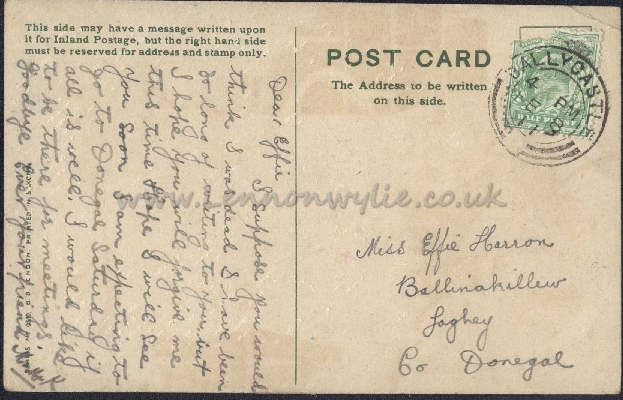 This side may have a message written upon
it for Inland Postage, but the right hand side
must be reserved for address and stamp only.
POST CARD
The Address to be written
on this side.
BALLYCASTLE
4 PM
HALFPENNY
Dear Effie I suppose you would
think I was dead I have been
so long of writing to you, but
I hope you will forgive me
this time Hope I will see
you soon I am expecting to
go to Donegal Saturday if
all is well. I would like
to be there for meetings.
Goodbye Ever your friend
Miss Effie Harron
Ballinakillew
Laghey
Co Donegal
www.Lennonwylie.co.uk